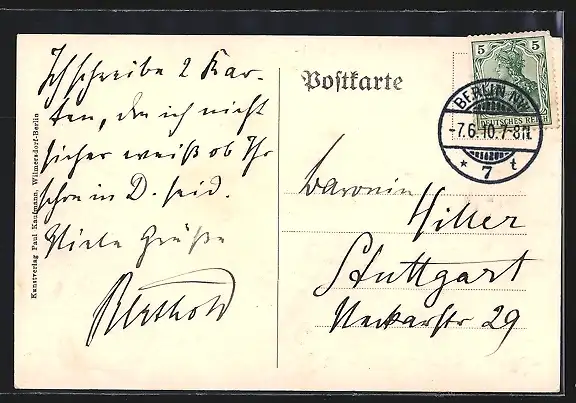 Ich schreibe 2 Kar-
ten, da ich nicht
sicher weiß ob Ihr
schon in D. seid.
Viele Grüße
Berthold
Kunstverlag Paul Kaufmann, Wilmersdorf-Berlin
Postkarte
5 5
DEUTSCHES REICH
BERLIN NW
-7.6.10.7-8N.
* 7 t
Baronin
Hiller
Stuttgart
Neckarstr 29